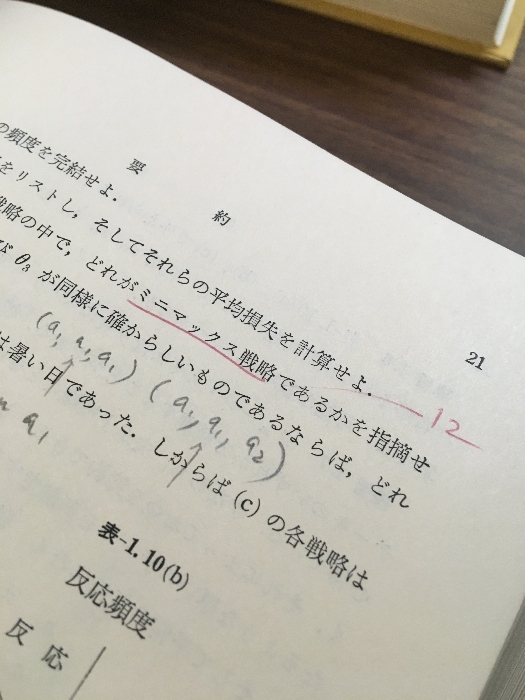 要 約
21
の頻度を完結せよ.
をリストし,そしてそれらの平均損失を計算せよ.
戦略の中で,どれがミニマックス戦略であるかを指摘せ
12
び θ₃ が同様に確からしいものであるならば,どれ
(a₁, a₁, a₁) (a₁, a₁, a₂)
は暑い日であった. しからば (c) の各戦略は
a₁
表-1.10(b)
反応頻度
反 応